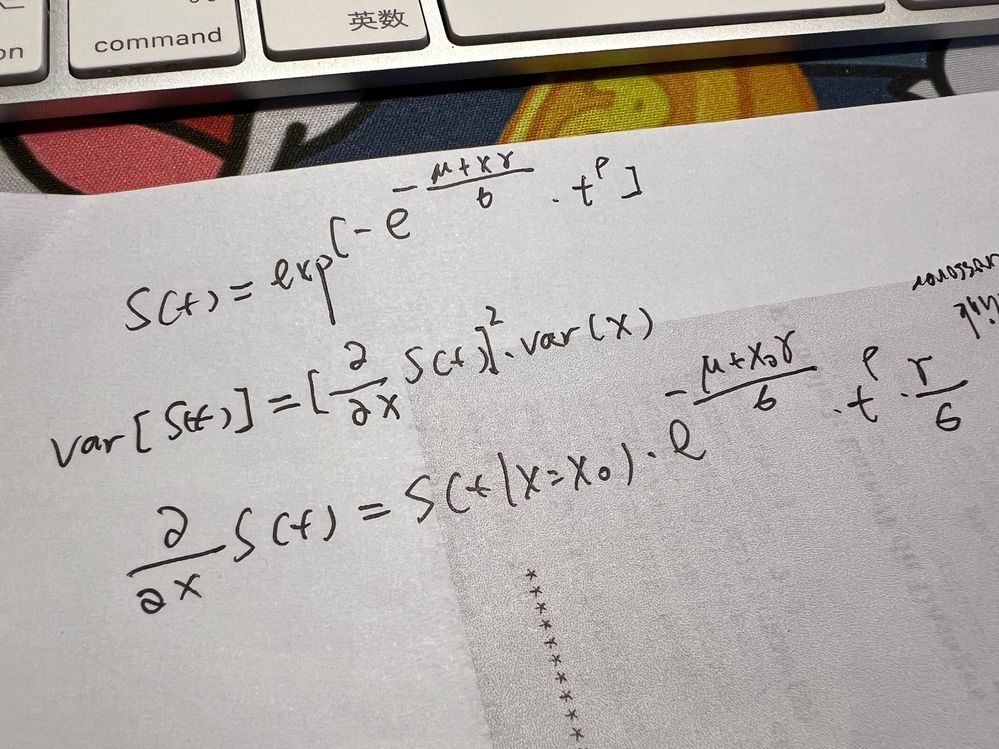 on command 英数
S(t) = exp[-e^{-\frac{μ+xγ}{6}} . t^ρ]
var[S(t)] = [\frac{∂}{∂x} S(t)]^2 . var(x)
\frac{∂}{∂x} S(t) = S(t|x=x_0) . e^{-\frac{μ+x_0γ}{6}} . t^ρ . \frac{r}{6}
* * * * * * * * * *